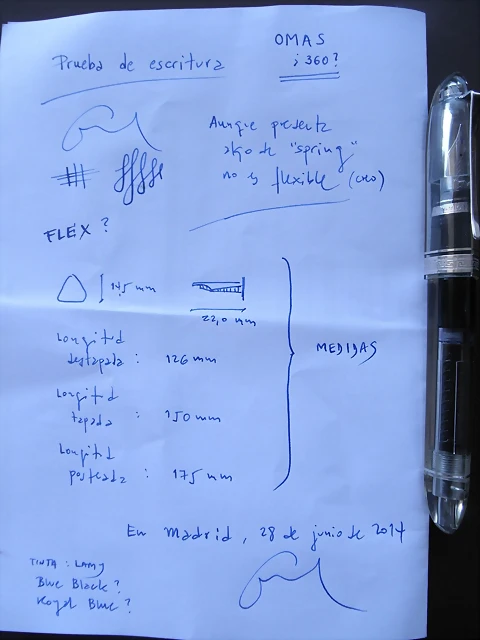 Prueba de escritura
OMAS
¿360?
Aunque presenta
algo de "spring"
no es flexible (creo)
FLEX?
14,5 mm
22,0 mm
Longitud
destapada : 126 mm
Longitud
tapada : 150 mm
Longitud
posteada : 175 mm
MEDIDAS
En Madrid, 28 de junio de 2014
TINTA: LAMY
Blue Black?
Royal Blue?